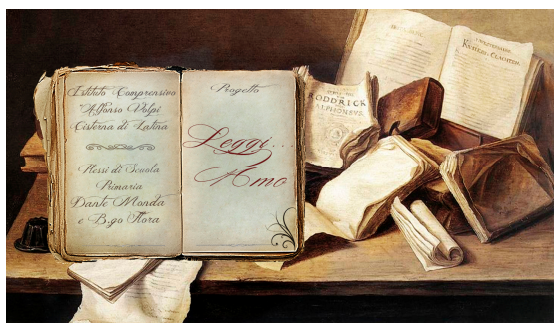 Istituto Comprensivo
"Alfonso Volpi
Cisterna di Latina
Plessi di Scuola
Primaria
Dante Monda
e B.go Flora
Progetto
Leggi...
Amo
RODDRICK
ALPHONSVS